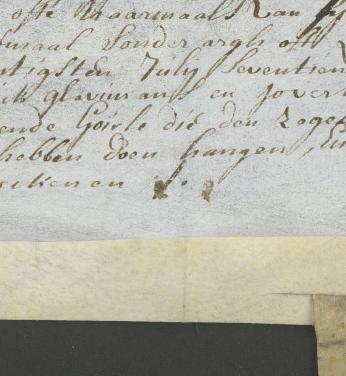 ofte Naarmaals Van
maal Sonder argh oft
tigsten July Seventien
en Jover
ende Goirle die den Zegel
hebben doen hangen, En